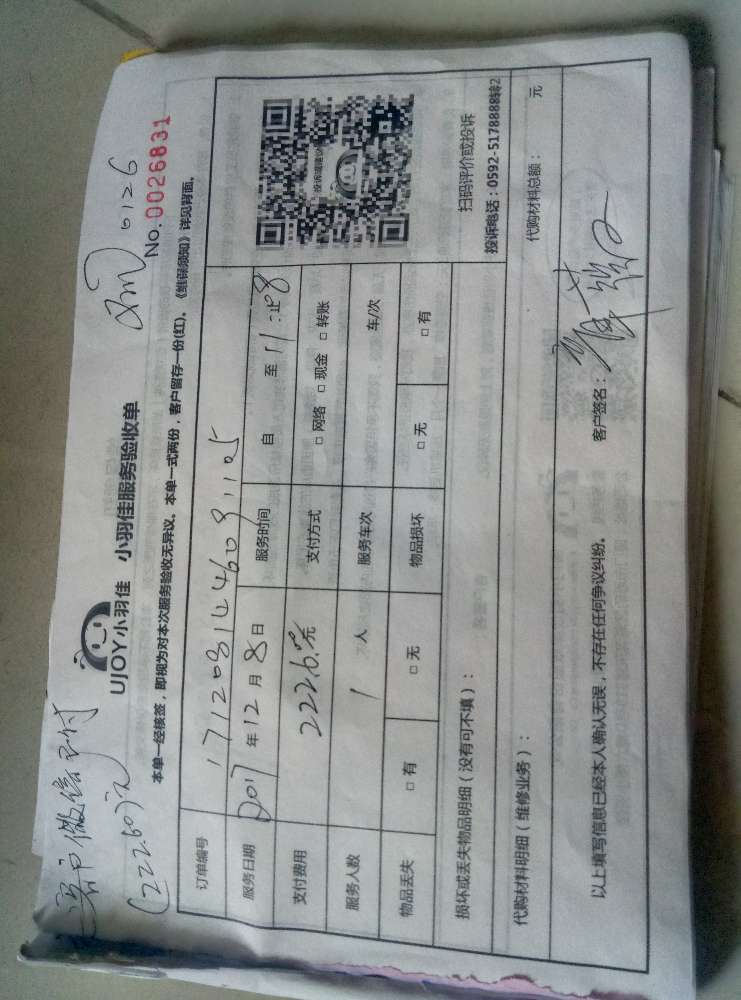 客户微信支付
UJOY小羽佳 小羽佳服务验收单
0126
No.0026831
本单一经核签，即视为对本次服务验收无异议。本单一式两份，客户留存一份(红)。《维保须知》详见背面。
订单编号
服务日期 2017年12月8日 服务时间 自 至
支付费用 支付方式 □网络 □现金 □转账
服务人数 1人 服务车次 车/次
物品丢失 □有 □无 物品损坏 □无 □有
扫码评价或投诉
投诉电话：0592-5178888转2
损坏或丢失物品明细（没有可不填）：
代购材料明细（维修业务）： 代购材料总额： 元
以上填写信息已经本人确认无误，不存在任何争议纠纷。 客户签名：